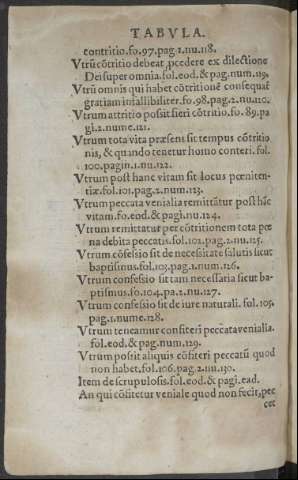 TABVLA.
contritio.fo.97.pag.1.nu.118.
Vtrũ cõtritio debeat ꝓcedere ex dilectione
Dei super omnia.fol.eod.& pag.num.119.
Vtrũ omnis qui habet cõtritionẽ consequat̃
gratiam infallibiliter.fo.98.pag.2.nu.120.
Vtrum attritio possit fieri cõtritio.fo.89.pa
gi.2.nume.121.
Vtrum tota vita præsens sit tempus cõtritio
nis,& quando tenetur homo conteri.fol.
100.pagin.1.nu.122.
Vtrum post hanc vitam sit locus pœniten-
tiæ.fol.101.pag.2.num.123.
Vtrum peccata venialia remittãtur post hãc
vitam.fo.eod.& pagi.nu.124.
Vtrum remittatur per cõtritionem tota pœ
na debita peccatis.fol.102.pag.2.nu.125.
Vtrum cõfessio sit de necessitate salutis sicut
baptismus.fol.103.pag.1.num.126.
Vtrum confessio sit tam necessaria sicut ba-
ptismus.fo.104.pa.2.nu.127.
Vtrum confessio sit de iure naturali.fol.105.
pag.1.nume.128.
Vtrum teneamur confiteri peccata venialia.
fol.eod.& pag.num.129.
Vtrum possit aliquis cõfiteri peccatũ quod
non habet.fol.106.pag.2.nu.130.
Item de scrupulosis.fol.eod.& pagi.ead.
An qui cõfitetur veniale quod non fecit,pec
cet